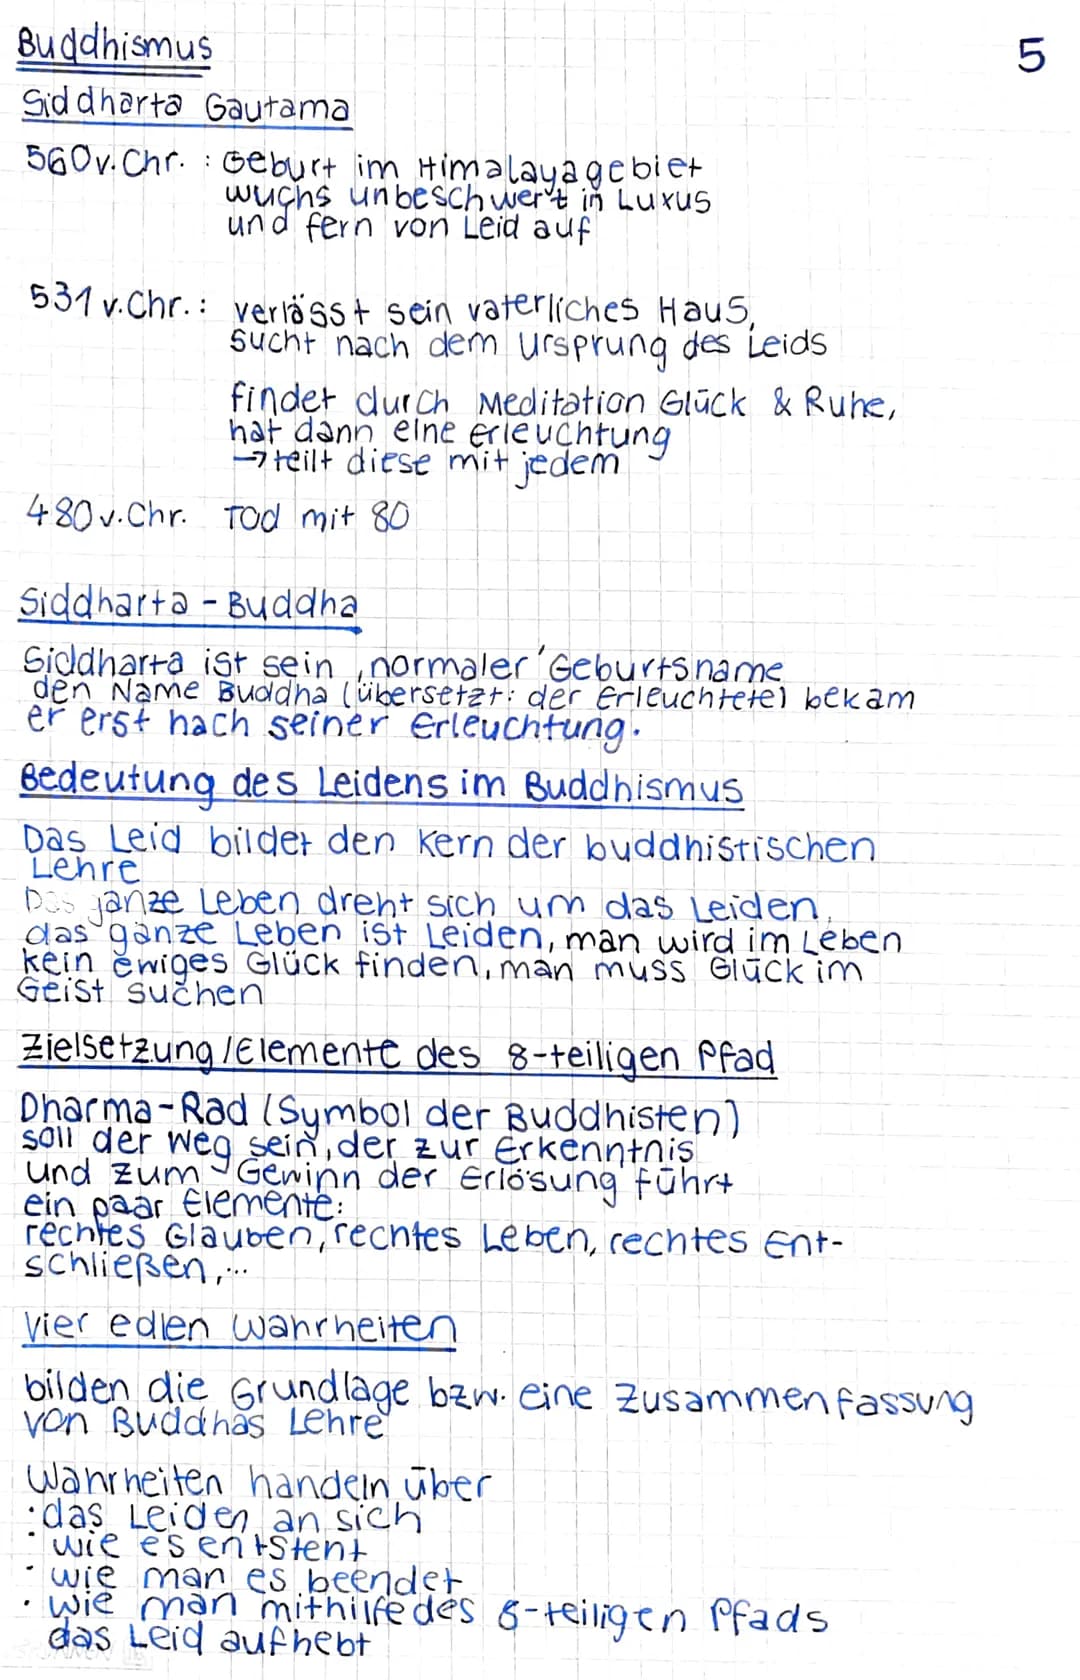 Buddhismus
5
Siddharta Gautama
560 v. Chr. : Geburt im Himalayagebiet
wuchs unbeschwert in Luxus
und fern von Leid auf
531 v. Chr. : verlässt sein vaterliches Haus,
sucht nach dem Ursprung des Leids
findet durch Meditation Glück & Ruhe,
hat dann eine Erleuchtung
→ teilt diese mit jedem
480 v. Chr. Tod mit 80
Siddharta - Buddha
Siddharta ist sein ,normaler' Geburtsname
den Name Buddha (übersetzt: der Erleuchtete) bekam
er erst nach seiner Erleuchtung.
Bedeutung des Leidens im Buddhismus
Das Leid bildet den Kern der buddhistischen
Lehre
Das ganze Leben dreht sich um das Leiden,
das ganze Leben ist Leiden, man wird im Leben
kein ewiges Glück finden, man muss Glück im
Geist suchen
Zielsetzung / Elemente des 8-teiligen Pfad
Dharma-Rad (Symbol der Buddhisten)
soll der Weg sein, der zur Erkenntnis
und zum Gewinn der Erlösung führt
ein paar Elemente:
rechtes Glauben, rechtes Leben, rechtes Ent-
schließen,...
vier edlen Wahrheiten
bilden die Grundlage bzw. eine Zusammenfassung
von Buddhas Lehre
Wahrheiten handeln über
· das Leiden an sich
· wie es entsteht
· wie man es beendet
· wie man mithilfe des 8-teiligen Pfads
das Leid aufhebt